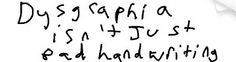 Dysgraphia
isn't Just
Bad handwriting